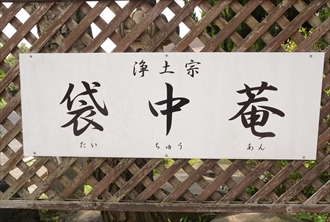 浄土宗
袋中菴
たい ちゅう あん